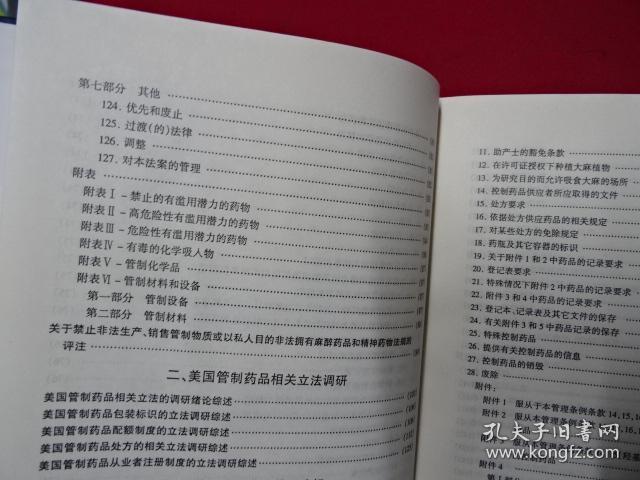 第七部分 其他
124. 优先和废止
125. 过渡(的)法律
126. 调整
127. 对本法案的管理
附表
附表Ⅰ-禁止的有滥用潜力的药物
附表Ⅱ-高危险性有滥用潜力的药物
附表Ⅲ-危险性有滥用潜力的药物
附表Ⅳ-有毒的化学吸入物
附表Ⅴ-管制化学品
附表Ⅵ-管制材料和设备
第一部分 管制设备
第二部分 管制材料
关于禁止非法生产、销售管制物质或以私人目的非法拥有麻醉药品和精神药物法规的
评注
二、美国管制药品相关立法调研
美国管制药品相关立法的调研绪论综述
美国管制药品包装标识的立法调研综述
美国管制药品配额制度的立法调研综述
美国管制药品处方的相关立法调研综述
美国管制药品从业者注册制度的立法调研综述
11. 助产士的豁免条款
12. 在许可证授权下种植大麻植物
13. 为研究目的而允许吸食大麻的场所
14. 控制药品供应者所应取得的文件
15. 处方要求
16. 依据处方供应药品的相关规定
17. 对某些处方的免除规定
18. 药瓶及其它容器的标识
19. 关于附件1和2中药品的记录要求
20. 登记表要求
21. 特殊情况下附件2中药品的记录要求
22. 附件3和4中药品的记录要求
23. 登记本、记录表及其它文件的保存
24. 有关附件3和5中药品记录的保存
25. 特殊控制药品
26. 提供有关控制药品的信息
27. 控制药品的销毁
28. 废除
附件:
附件1 服从于本管理条例条款14,15,1
附件2 服从本管理条例
附件4
孔夫子旧书网
www.kongfz.com